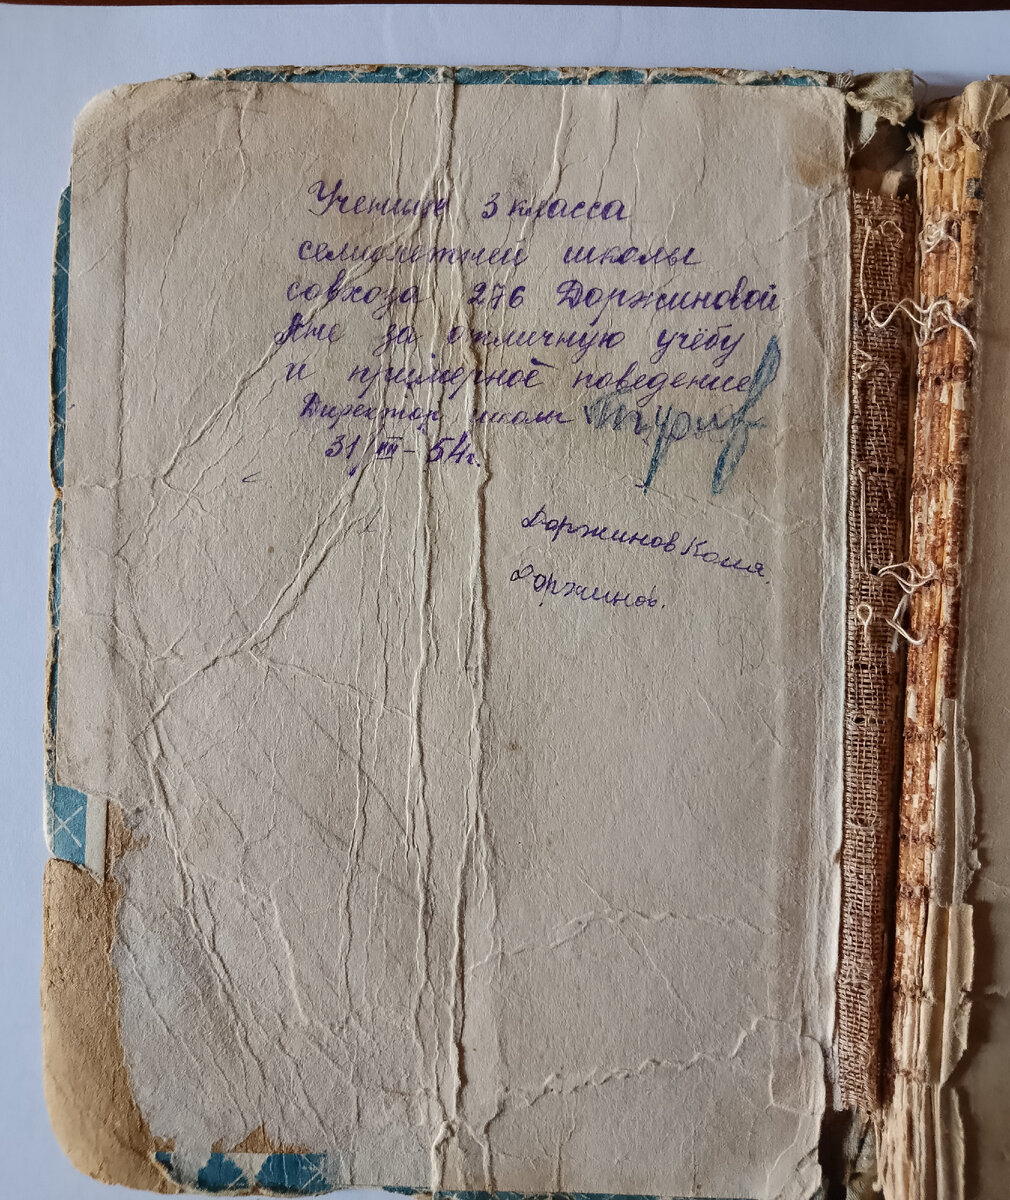 Ученице 3 класса
семилетней школы
совхоза 276 Доржиновой
за отличную учёбу
и примерное поведение
Директор школы
31/III – 54 г.
Доржинов Коля.
Доржинов.